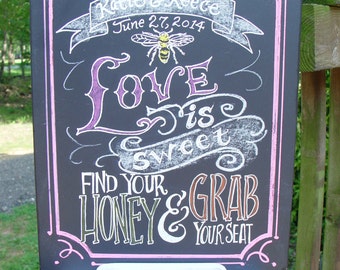 Katie & Reece
June 27, 2014
LOVE
is
Sweet
FIND YOUR
HONEY & GRAB
YOUR SEAT